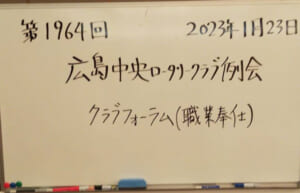 第1964回 2023年1月23日
広島中央ロータリークラブ例会
クラブフォーラム(職業奉仕)